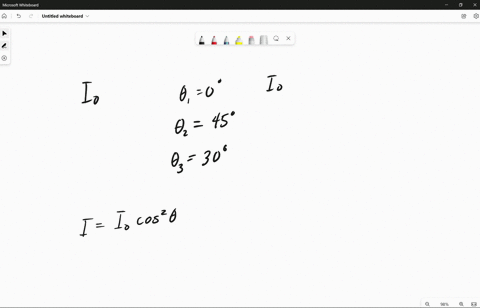 Microsoft Whiteboard
Untitled whiteboard
I₀ θ₁ = 0° I₀
θ₂ = 45°
θ₃ = 30°
I = I₀ cos² θ
98%